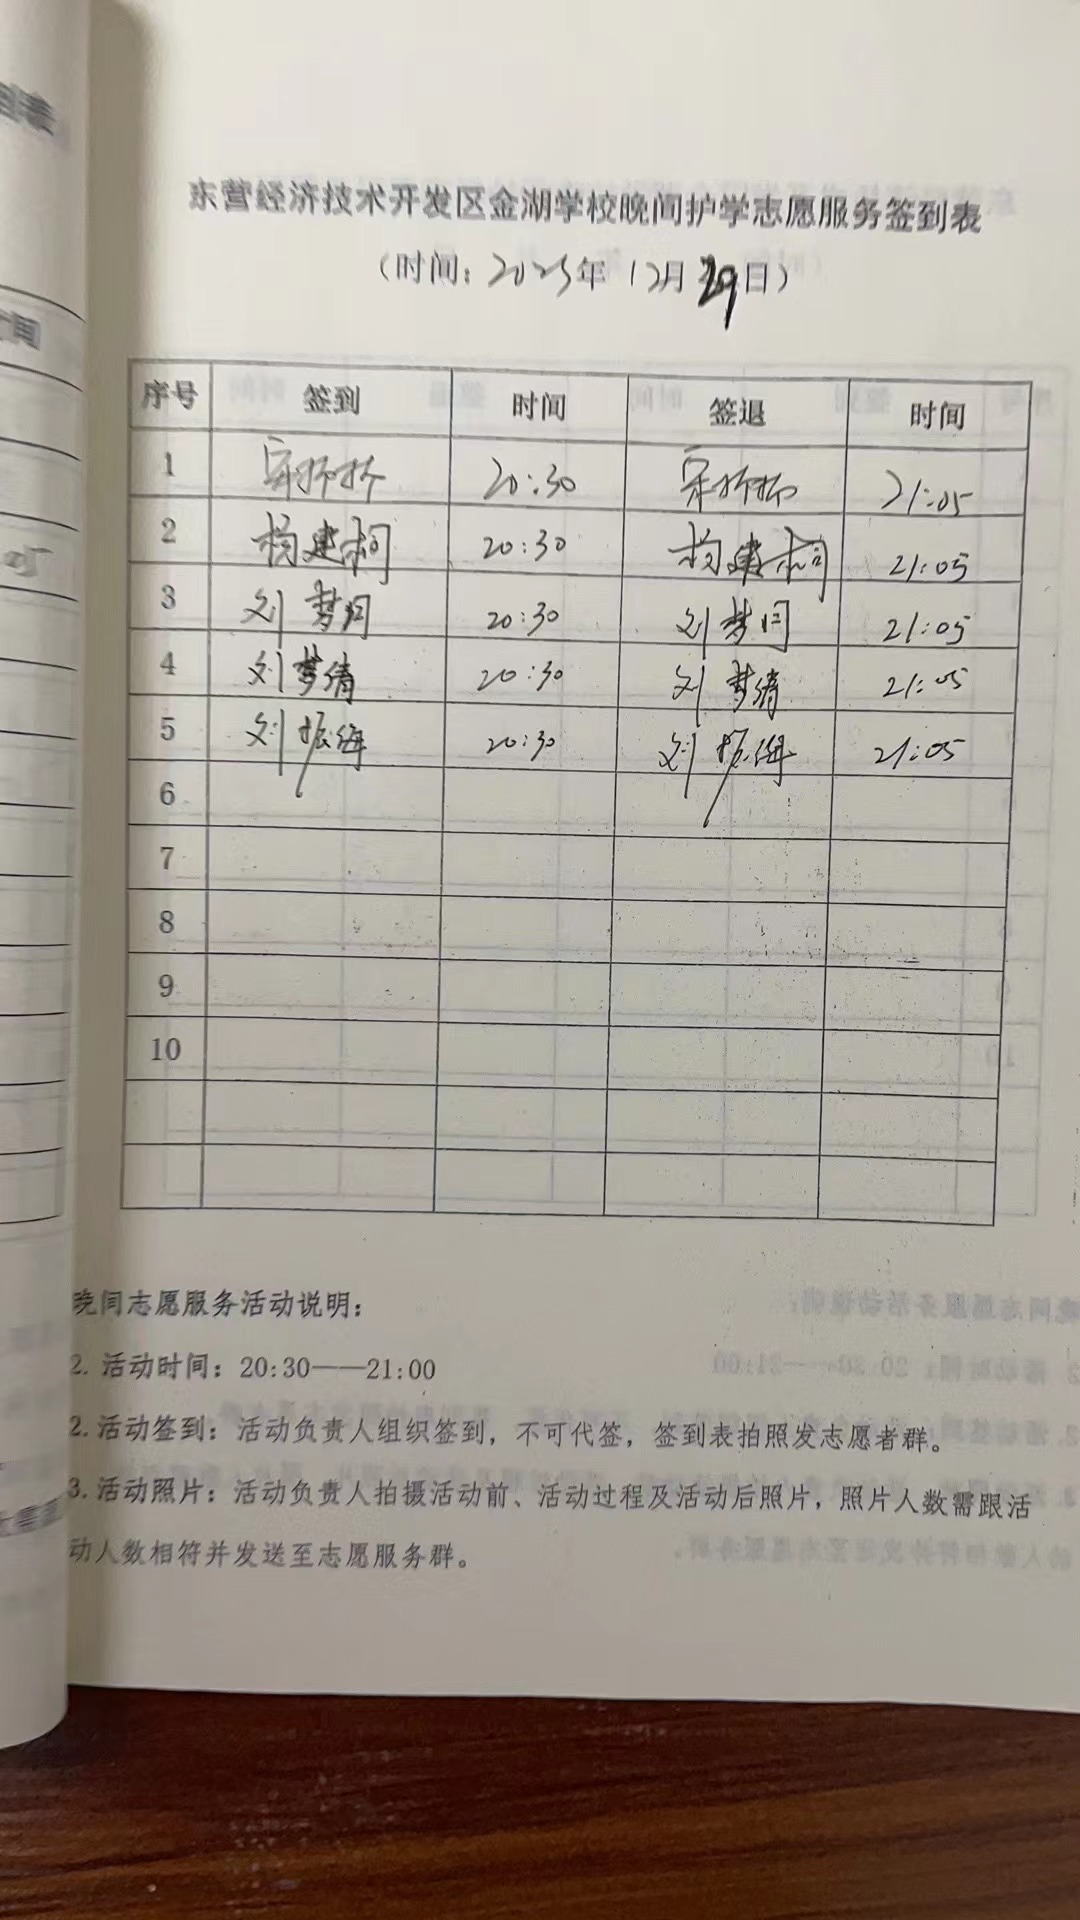 东营经济技术开发区金湖学校晚间护学志愿服务签到表
（时间：2025年12月29日）
序号 签到 时间 签退 时间
1 20:30 21:05
2 20:30 21:05
3 刘梦 20:30 刘梦 21:05
4 刘梦倩 20:30 刘梦倩 21:05
5 刘振海 20:30 刘振海 21:05
6
7
8
9
10
晚间志愿服务活动说明：
2. 活动时间：20:30——21:00
2. 活动签到：活动负责人组织签到，不可代签，签到表拍照发志愿者群。
3. 活动照片：活动负责人拍摄活动前、活动过程及活动后照片，照片人数需跟活
动人数相符并发送至志愿服务群。